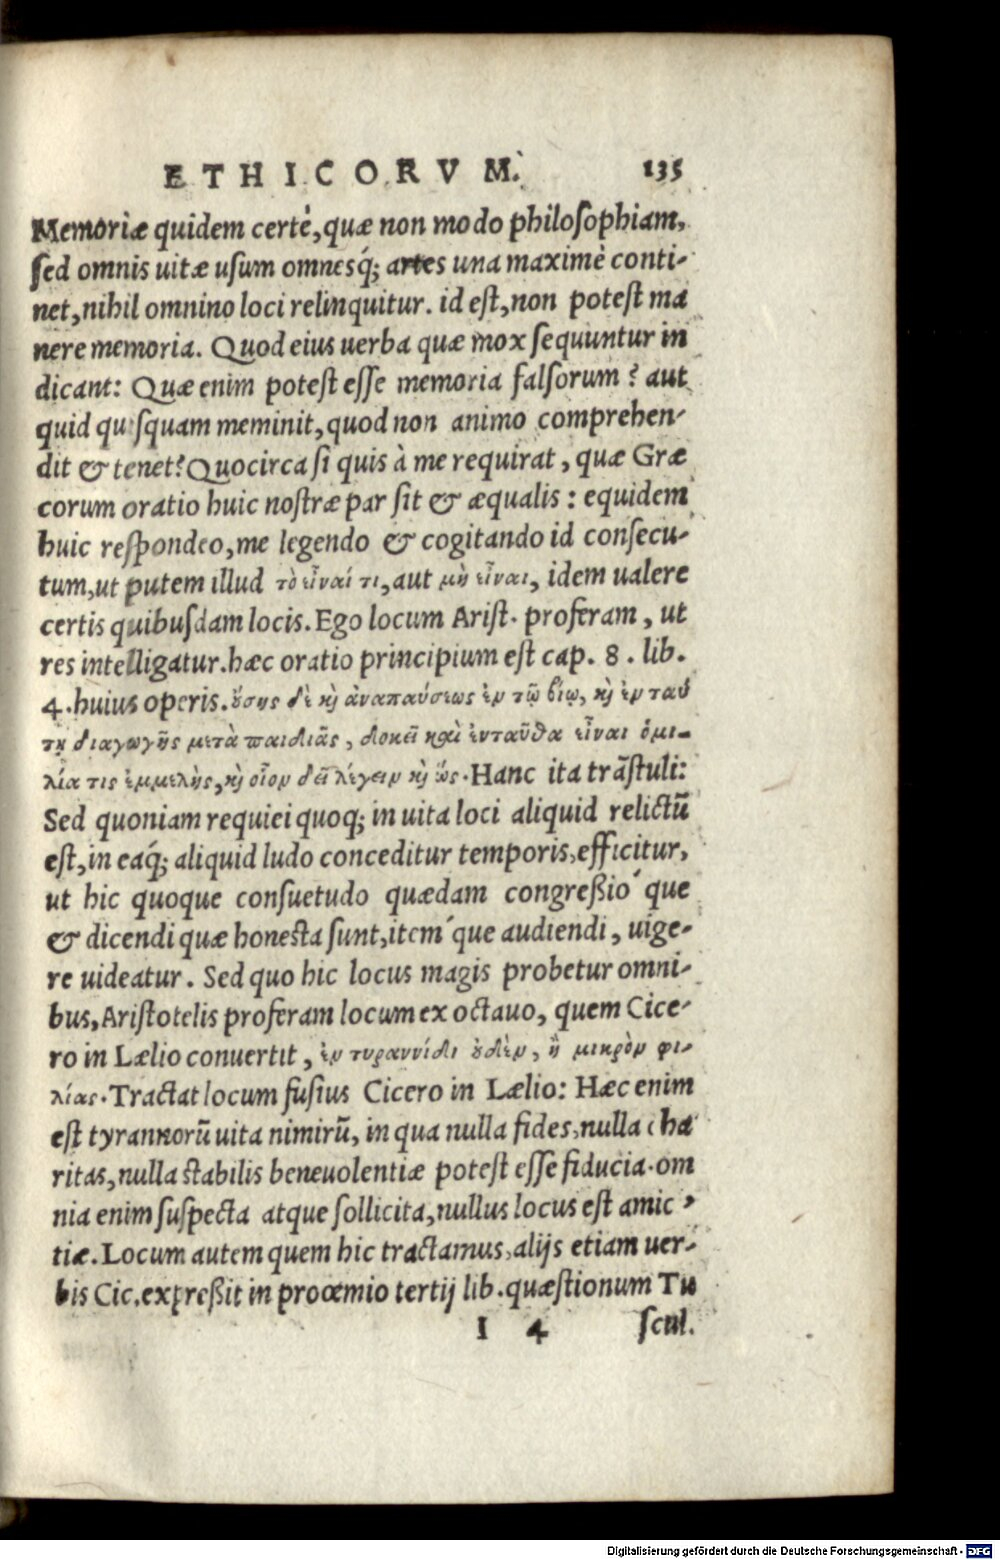 ETHICORVM. 135
Memoriæ quidem certè, quæ non modo philosophiam,
sed omnis uitæ usum omnesq́; artes una maximè conti-
net, nihil omnino loci relinquitur. id est, non potest ma
nere memoria. Quod eius uerba quæ mox sequuntur in
dicant: Quæ enim potest esse memoria falsorum? aut
quid quisquam meminit, quod non animo comprehen-
dit & tenet? Quocirca si quis à me requirat, quæ Græ
corum oratio huic nostræ par sit & æqualis: equidem
huic respondeo, me legendo & cogitando id consecu-
tum, ut putem illud τὸ εἶναί τι, aut μὴ εἶναι, idem ualere
certis quibusdam locis. Ego locum Arist. proferam, ut
res intelligatur. hæc oratio principium est cap. 8. lib.
4. huius operis. ὄσης δὲ κὴ ἀναπαύσεως ἐν τῷ βίῳ, κὴ ἐν ταύ
τῃ διαγωγῆς μετὰ παιδιᾶς, δοκεῖ καὶ ἐνταῦθα εἶναι ὁμι-
λία τις ἐμμελὴς, κὴ οἷον δεῖ λέγειν κὴ ὥς. Hanc ita trãstuli:
Sed quoniam requiei quoq; in uita loci aliquid relictũ
est, in eaq́; aliquid ludo conceditur temporis, efficitur,
ut hic quoque consuetudo quædam congreßio´que
& dicendi quæ honesta sunt, item´que audiendi, uige-
re uideatur. Sed quo hic locus magis probetur omni-
bus, Aristotelis proferam locum ex octauo, quem Cice-
ro in Lælio conuertit, ἐν τυραννίδι ὀδὲν, ἢ μικρὸν φι-
λίας. Tractat locum fusius Cicero in Lælio: Hæc enim
est tyrannorũ uita nimirũ, in qua nulla fides, nulla cha
ritas, nulla stabilis beneuolentiæ potest esse fiducia. om
nia enim suspecta atque sollicita, nullus locus est amic
tiæ. Locum autem quem hic tractamus, alijs etiam uer-
bis Cic. expreßit in proœmio tertij lib. quæstionum Tu
I 4 scul.
Digitalisierung gefördert durch die Deutsche Forschungsgemeinschaft - DFG